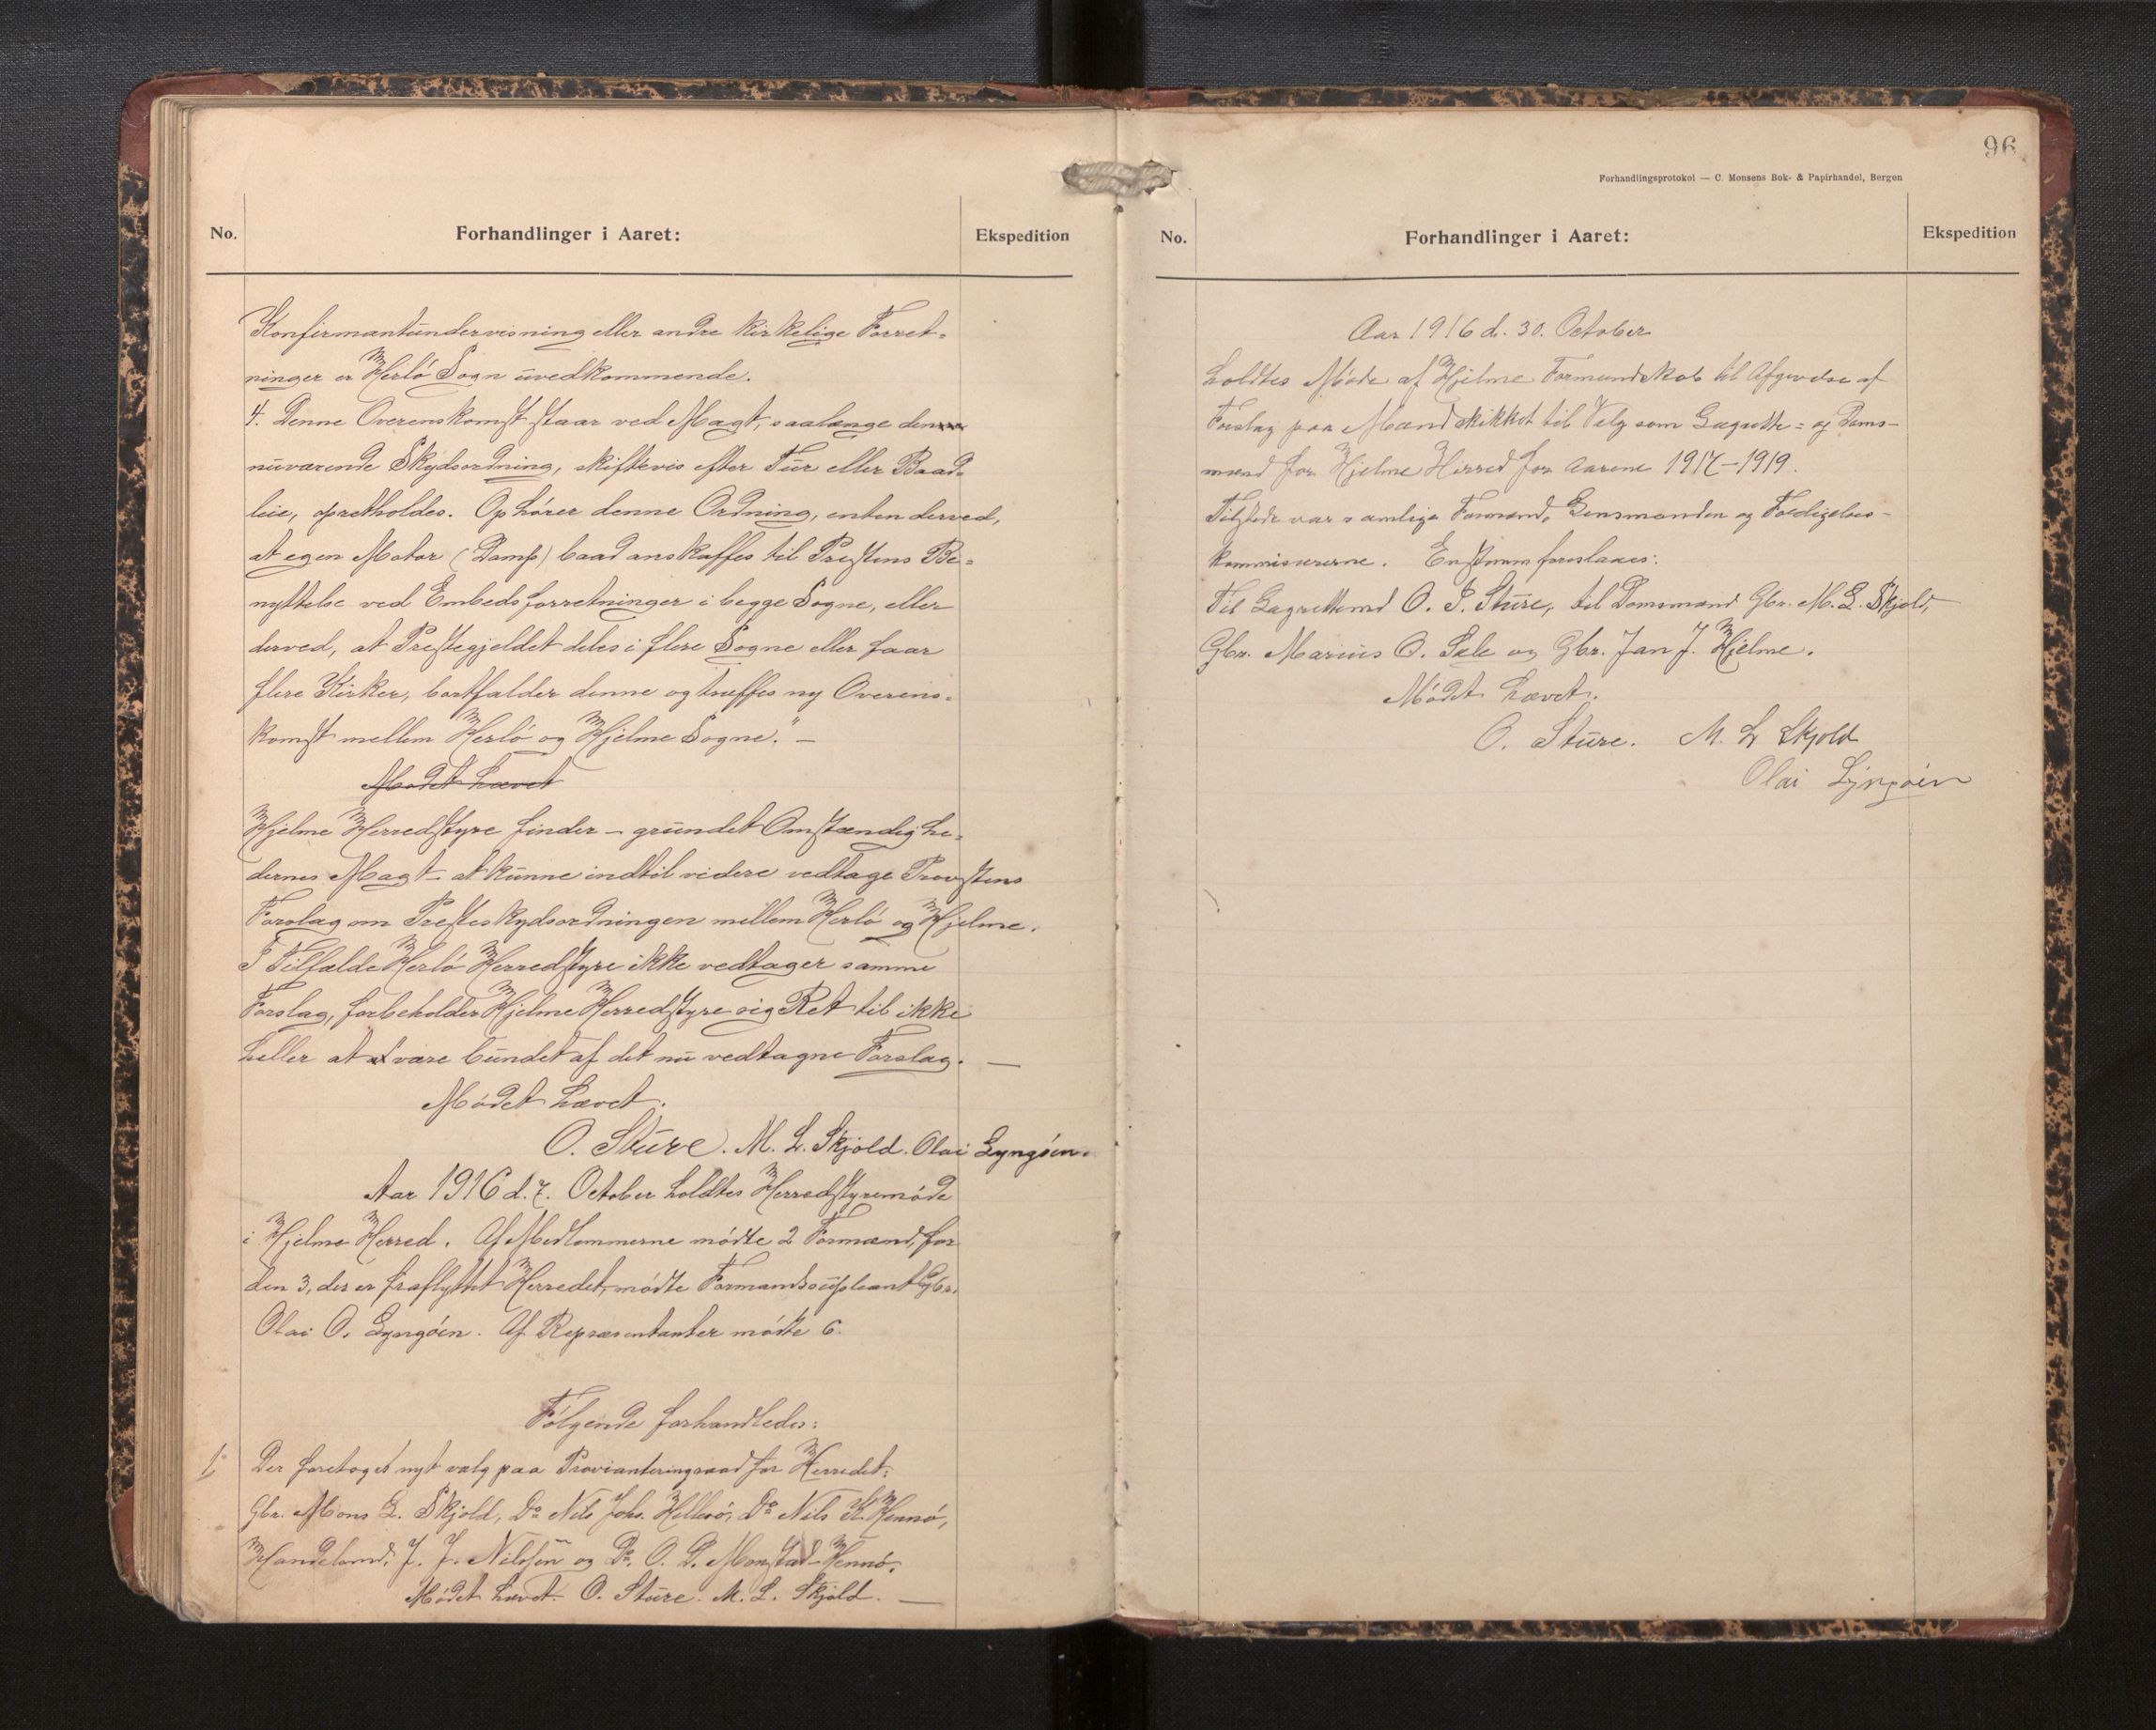 No.
Forhandlinger i Aaret:
Ekspedition
Konfirmantundervisning eller andre kirkelige Forret-
ninger er Herlö Sogn uvedkommende.
4. Denne Overenskomst staar ved Magt, saalænge den
nuværende Skydsordning, skiftevis efter Tur eller Baad-
leie, opretholdes. Ophører denne Ordning, enten derved,
at egen Motor (Damp) baad anskaffes til Prestens Be-
nyttelse ved Embedsforretninger i begge Sogne, eller
derved, at Prestegjeldet deles i flere Sogne eller faar
flere Kirker, bortfalder denne og træffes ny Overens-
komst mellem Herlö og Hjelme Sogne." —
Mødet hævet
Hjelme Herredstyre finder – grundet Omstændighe-
dernes Magt – at kunne indtil videre vedtage Provstens
Forslag om Presteskydsordningen mellem Herlö og Hjelme.
I Tilfælde Herlö Herredstyre ikke vedtager samme
Forslag, forbeholder Hjelme Herredstyre sig Ret til ikke
heller at være bundet af det nu vedtagne Forslag. —
Mødet hævet.
O. Sture. M. L. Skjold. Olai Lyngøen.
Aar 1916 d. 7. October holdtes Herredstyremøde
i Hjelme Herred. Af Medlemmerne mødte 2 Formænd, for
den 3, der er fraflyttet Herredet, mødte Formandsupleant Gbr.
Olai O. Lyngøen. Af Repræsentanter mødte 6.
Følgende forhandledes:
1. Der foretoges nyt valg paa Provianteringsraad for Herredet:
Gbr. Mons L. Skjold, Do Nils Johs. Hellesö, Do Nils K. Hennö,
Handelsmd. J. J. Nilssen og Do. O. D. Monstad-Hennö.
Mødet hævet. O. Sture. M. L. Skjold. —
96
Forhandlingsprotokol — C. Monsens Bok- & Papirhandel, Bergen
No.
Forhandlinger i Aaret:
Ekspedition
Aar 1916 d. 30. October
holdtes Møde af Hjelme Formandskab til Afgivelse af
Forslag paa Mænd skikket til Valg som Lagrette- og Doms-
mænd for Hjelme Herred for Aarene 1917–1919.
Tilstede var samtlige Formænd, Lensmanden og Forligelses-
kommisærerne. Enstemm foreslaaes:
Til Lagrettemd O. J. Sture, til Domsmænd Gbr. M. L. Skjold,
Gbr. Marius O. Sæle og Gbr. Jan J. Hjelme.
Mødet hævet.
O. Sture. M. L Skjold
Olai Lyngøen